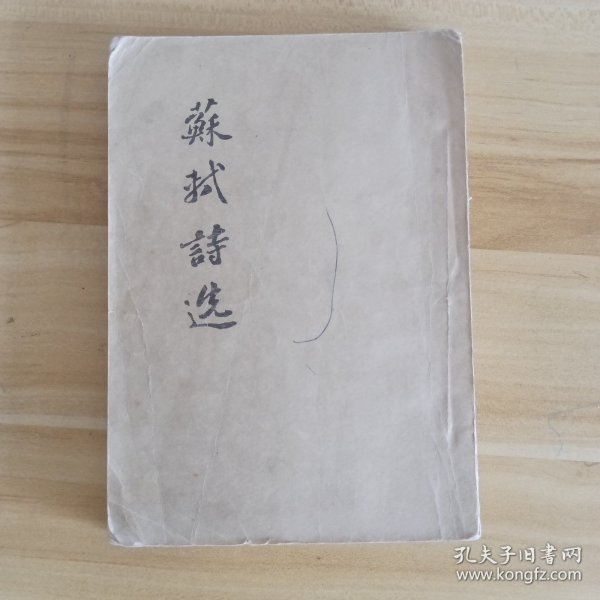 蘇軾詩选
孔夫子旧書网
www.kongfz.com